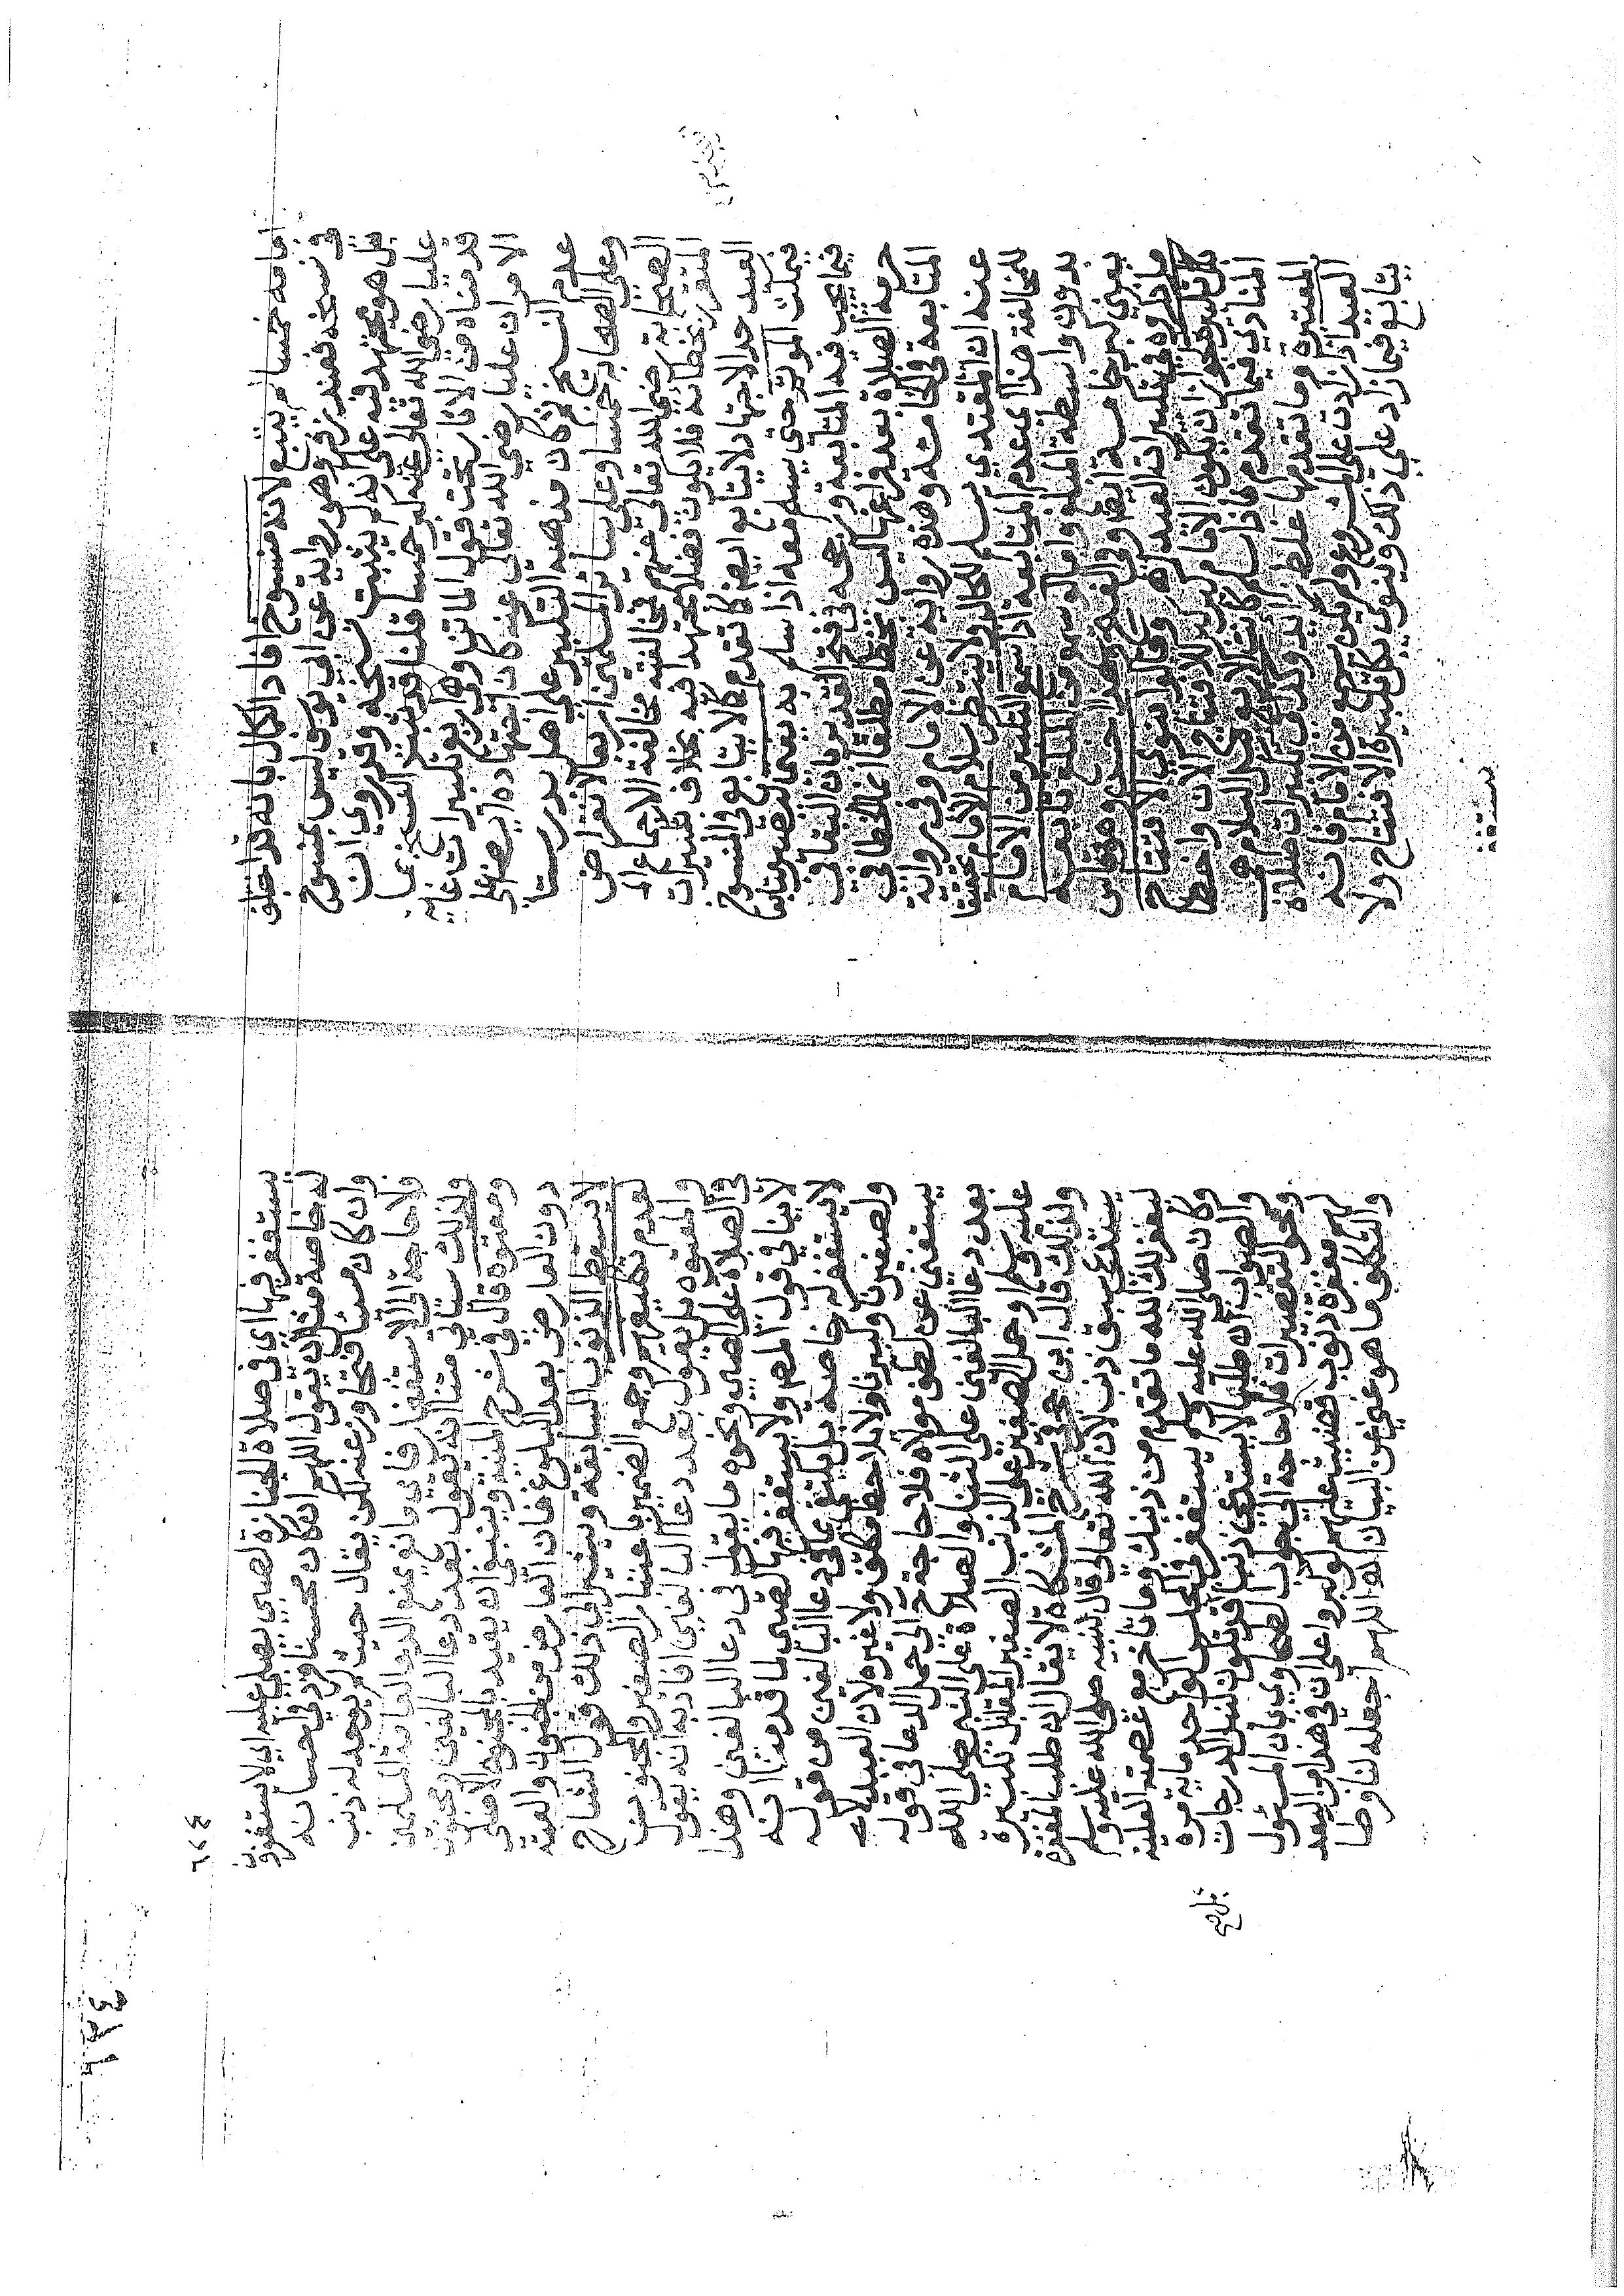 امامه خمسا لم يتبع لانه منسوخ افاد الكمال بانه قد اختلف
في نسخه فعند زفر وهو رواية عن ابي يوسف ليس بمنسوخ
بل هو مجتهد فيه على انه لم يثبت نسخه وقد روي ان
عليا رضي الله تعالى عنه كبر خمسا قلنا قد ثبت النسخ بما
قدمناه من الاثار تحت قول الماتن وهي اربع تكبيرات غاية
الامر ان عليا رضي الله تعالى عنه كان اجتهاده ايضا على
عدم النسخ ثم كان مذهبه التكبير على اهل بدر ستا
وعلى الصحابة خمسا وعلى سائر المسلمين اربعا لانقراض
الصحابة رضي الله تعالى عنهم فمخالفته مخالفة الاجماع
المتقرر بخطائه فلا يكون فصلا مجتهدا فيه بخلاف تكبيرات
العيد حد الاجتهاد لا يتابع ايضا كما تقدم كما لا يتابع في المنسوخ
فيمكث الموتم حتى يسلم معه اذا سلم به يفتى
فيما يجب فيه المتابعة ورجحه في فتح القدير بان البقا في
حرمة الصلاة بعد فراغها ليس بخطا مطلقا انما الخطا في
المتابعة في الخامسة وهذه رواية عن الامام وفي رواية
عنه ان المقتدي يسلم للحال ولا ينتظر سلام الامام تحقيقا
للمخالفة هذا اي عدم المتابعة اذا سمع التكبير من الامام
بدون واسطة المبلغ واما لو سمع من المبلغ تابعه
يعني لو كبر خامسة ايضا وفي الفتح وهذا حسن وهو قياس
ما ذكروه في تكبيرات العيد اه وقالوا ينوي الافتتاح
بكل تكبيرة لجواز ان يكون الامام كبر للافتتاح الان واخطا
المنادي فيما تقدم فاذا سلم كانت الاربع قبل السلام هي
المعتبرة وما تقدمها غلط زائد وكذا في تكبيرات صلاة
العيد اذا زادت على المشروع ولم يكن يسمع من الامام فانه
يتابع فيما زاد على ذلك وينوي بكل تكبيرة الافتتاح ولا
يستغفر
يستغفر فيها اي في صلاة الجنازة لصبي يصلي عليه اي لا يستغفر
له خاصة مثل ان يقول اللهم ان كان محسنا فزد في احسانه
وان كان مسيئا فتجاوز عنه لكن يقال حيث لم يوجد له ذنب
فلا حاجة الى الاستغفار
ولذلك سياتي متنا انه يقول بعد دعا البالغين ومجنون
ومعتوه قال في شرح المنية وينبغي ان يقيد بالجنون الاصلي
دون العارض بعد البلوغ فان العارض من الجنون والعته
لا يسقط الذنوب السابقة ويشير الى ذلك قول الشارح
لعدم تكليفهم وجمع الضمير باعتبار الصغير والمجنون
والمعتوه بل يقول بعد دعا البالغين افاد به انه يقول
في الصلاة على الصبي ونحوه ما يقول في دعا البالغين وهذا
لا ينافي قول المص ولا يستغفر فيها لصبي لما قدمنا انه
لا يستغفر له خاصة بل يكتفي بما في دعا البالغين من قوله
وصغيرنا وكبيرنا ولا يلاحظ مكلف ولا غيره لان العبد لا
يستغني عن لطف مولاه فلا حاجة ح الى حمل الدعا في قوله
بعد دعا البالغين على الثنا والصلاة على النبي صلى الله
عليه وسلم وحمل الصغير على الذنب الصغير المقابل للكبيرة
ولذلك قال ابن حجر في شرح المشكاة لا يقال ان طلب المغفرة
يستدعي سبق ذنب لان الله تعالى قال لنبيه صلى الله عليه وسلم
ليغفر لك الله ما تقدم من ذنبك وما تاخر مع عصمته العلية
وكان صلى الله عليه وسلم يستغفر في المجلس الواحد ماية مرة
والصواب ان طلبها لا يستدعي ذنبا فقد تكون لنيل الدرجات
ونحو التقصيرات فلا حاجة الى جواب الطحاوي بان المسئول
لهم مغفرة ذنوب قضيت عليهم لو كبروا على ان في هذا من البعد
والتكلف ما هو غني عن البيان اه اللهم اجعله لنا فرطا